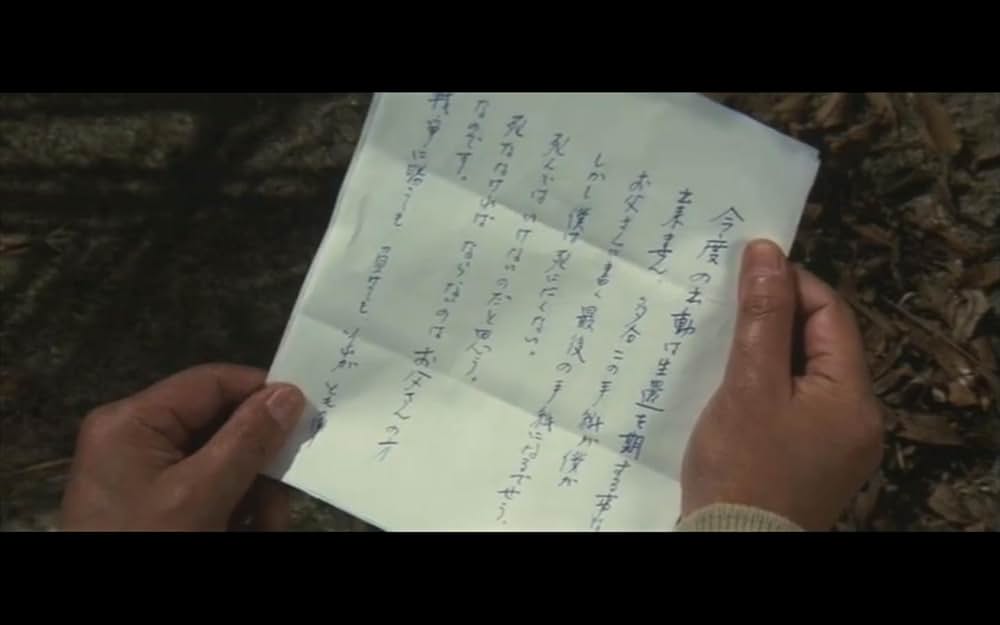 今度の出動は生還を期する事は
出来ません。多分この手紙が僕が
お父さんに書く最後の手紙になるでせう。
しかし僕は死にたくない。
死んではいけないのだと思う。
死ななければならないのはお父さんの方
なのです。
戦争に勝っても 負けても それが